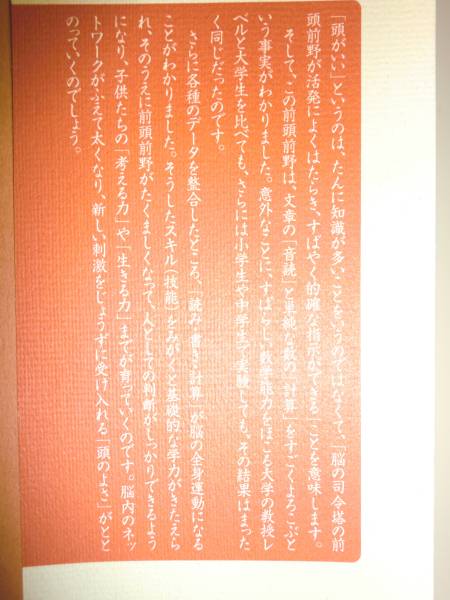 「頭がいい」というのは、たんに知識が多いことをいうのではなくて、「脳の司令塔の前
頭前野が活発によくはたらき、すばやく的確な指示ができる」ことを意味します。
そして、この前頭前野は、文章の「音読」と単純な数の「計算」をすごくよろこぶと
いう事実がわかりました。意外なことに、すばらしい数学能力をほこる大学の教授レ
ベルと大学生を比べても、さらには小学生や中学生で実験しても、その結果はまった
く同じだったのです。
さらに各種のデータを整合したところ、「読み・書き・計算」が脳の全身運動になる
ことがわかりました。そうしたスキル（技能）をみがくと基礎的な学力がきたえら
れ、そのうえに前頭前野がたくましくなって、人としての判断がしっかりできるよう
になり、子供たちの「考える力」や「生きる力」までが育っていくのです。脳内のネッ
トワークがふえて太くなり、新しい刺激をじょうずに受け入れる「頭のよさ」がとと
のっていくのでしょう。